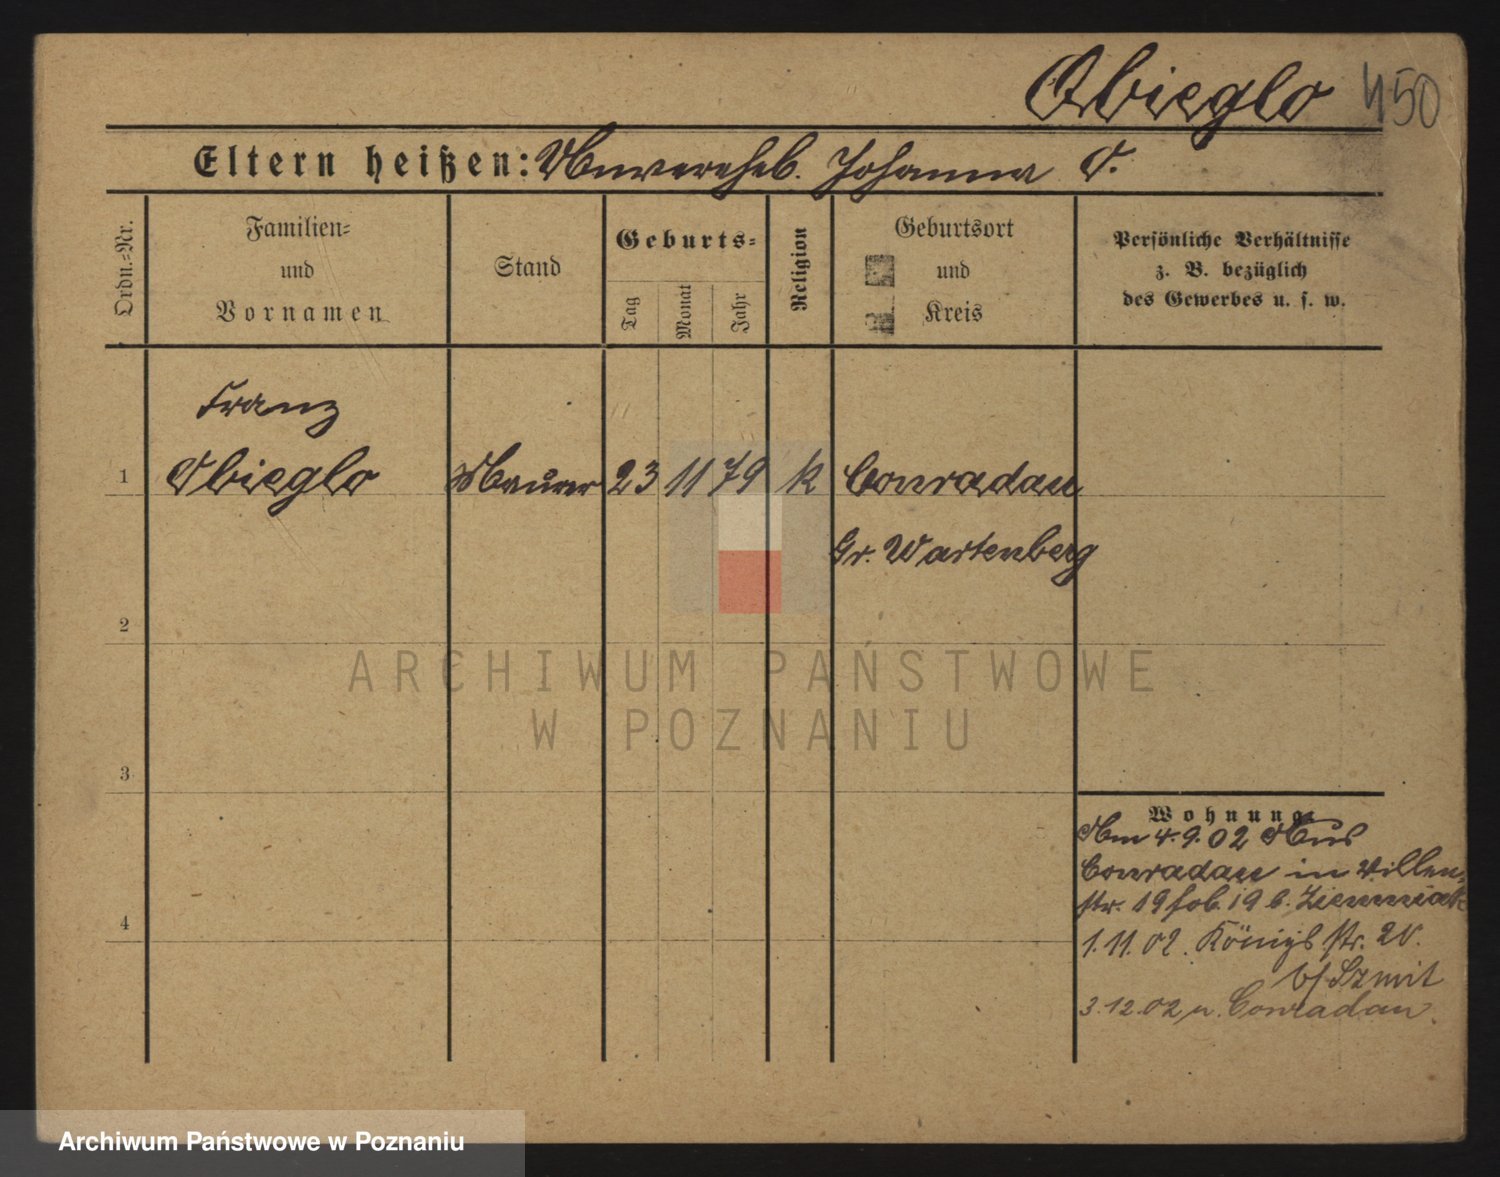 Obieglo 450
Eltern heißen: Unvereheb. Johanna O.
Ordn.=Nr.
Familien=
und
Vornamen
Stand
Geburts=
Tag
Monat
Jahr
Religion
Geburtsort
und
Kreis
Persönliche Verhältnisse
z. B. bezüglich
des Gewerbes u. s. w.
Franz
1 Obieglo Maurer 23 11 79 k Conradau
Gr. Wartenberg
2
ARCHIWUM PAŃSTWOWE
W POZNANIU
3
Wohnung
Am 4.9.02 Aus
Conradau in Villen=
str. 19 b. Ziemniak
4
1.11.02. Königs str. 20.
b/ Szmit
3.12.02 n. Conradau.
Archiwum Państwowe w Poznaniu